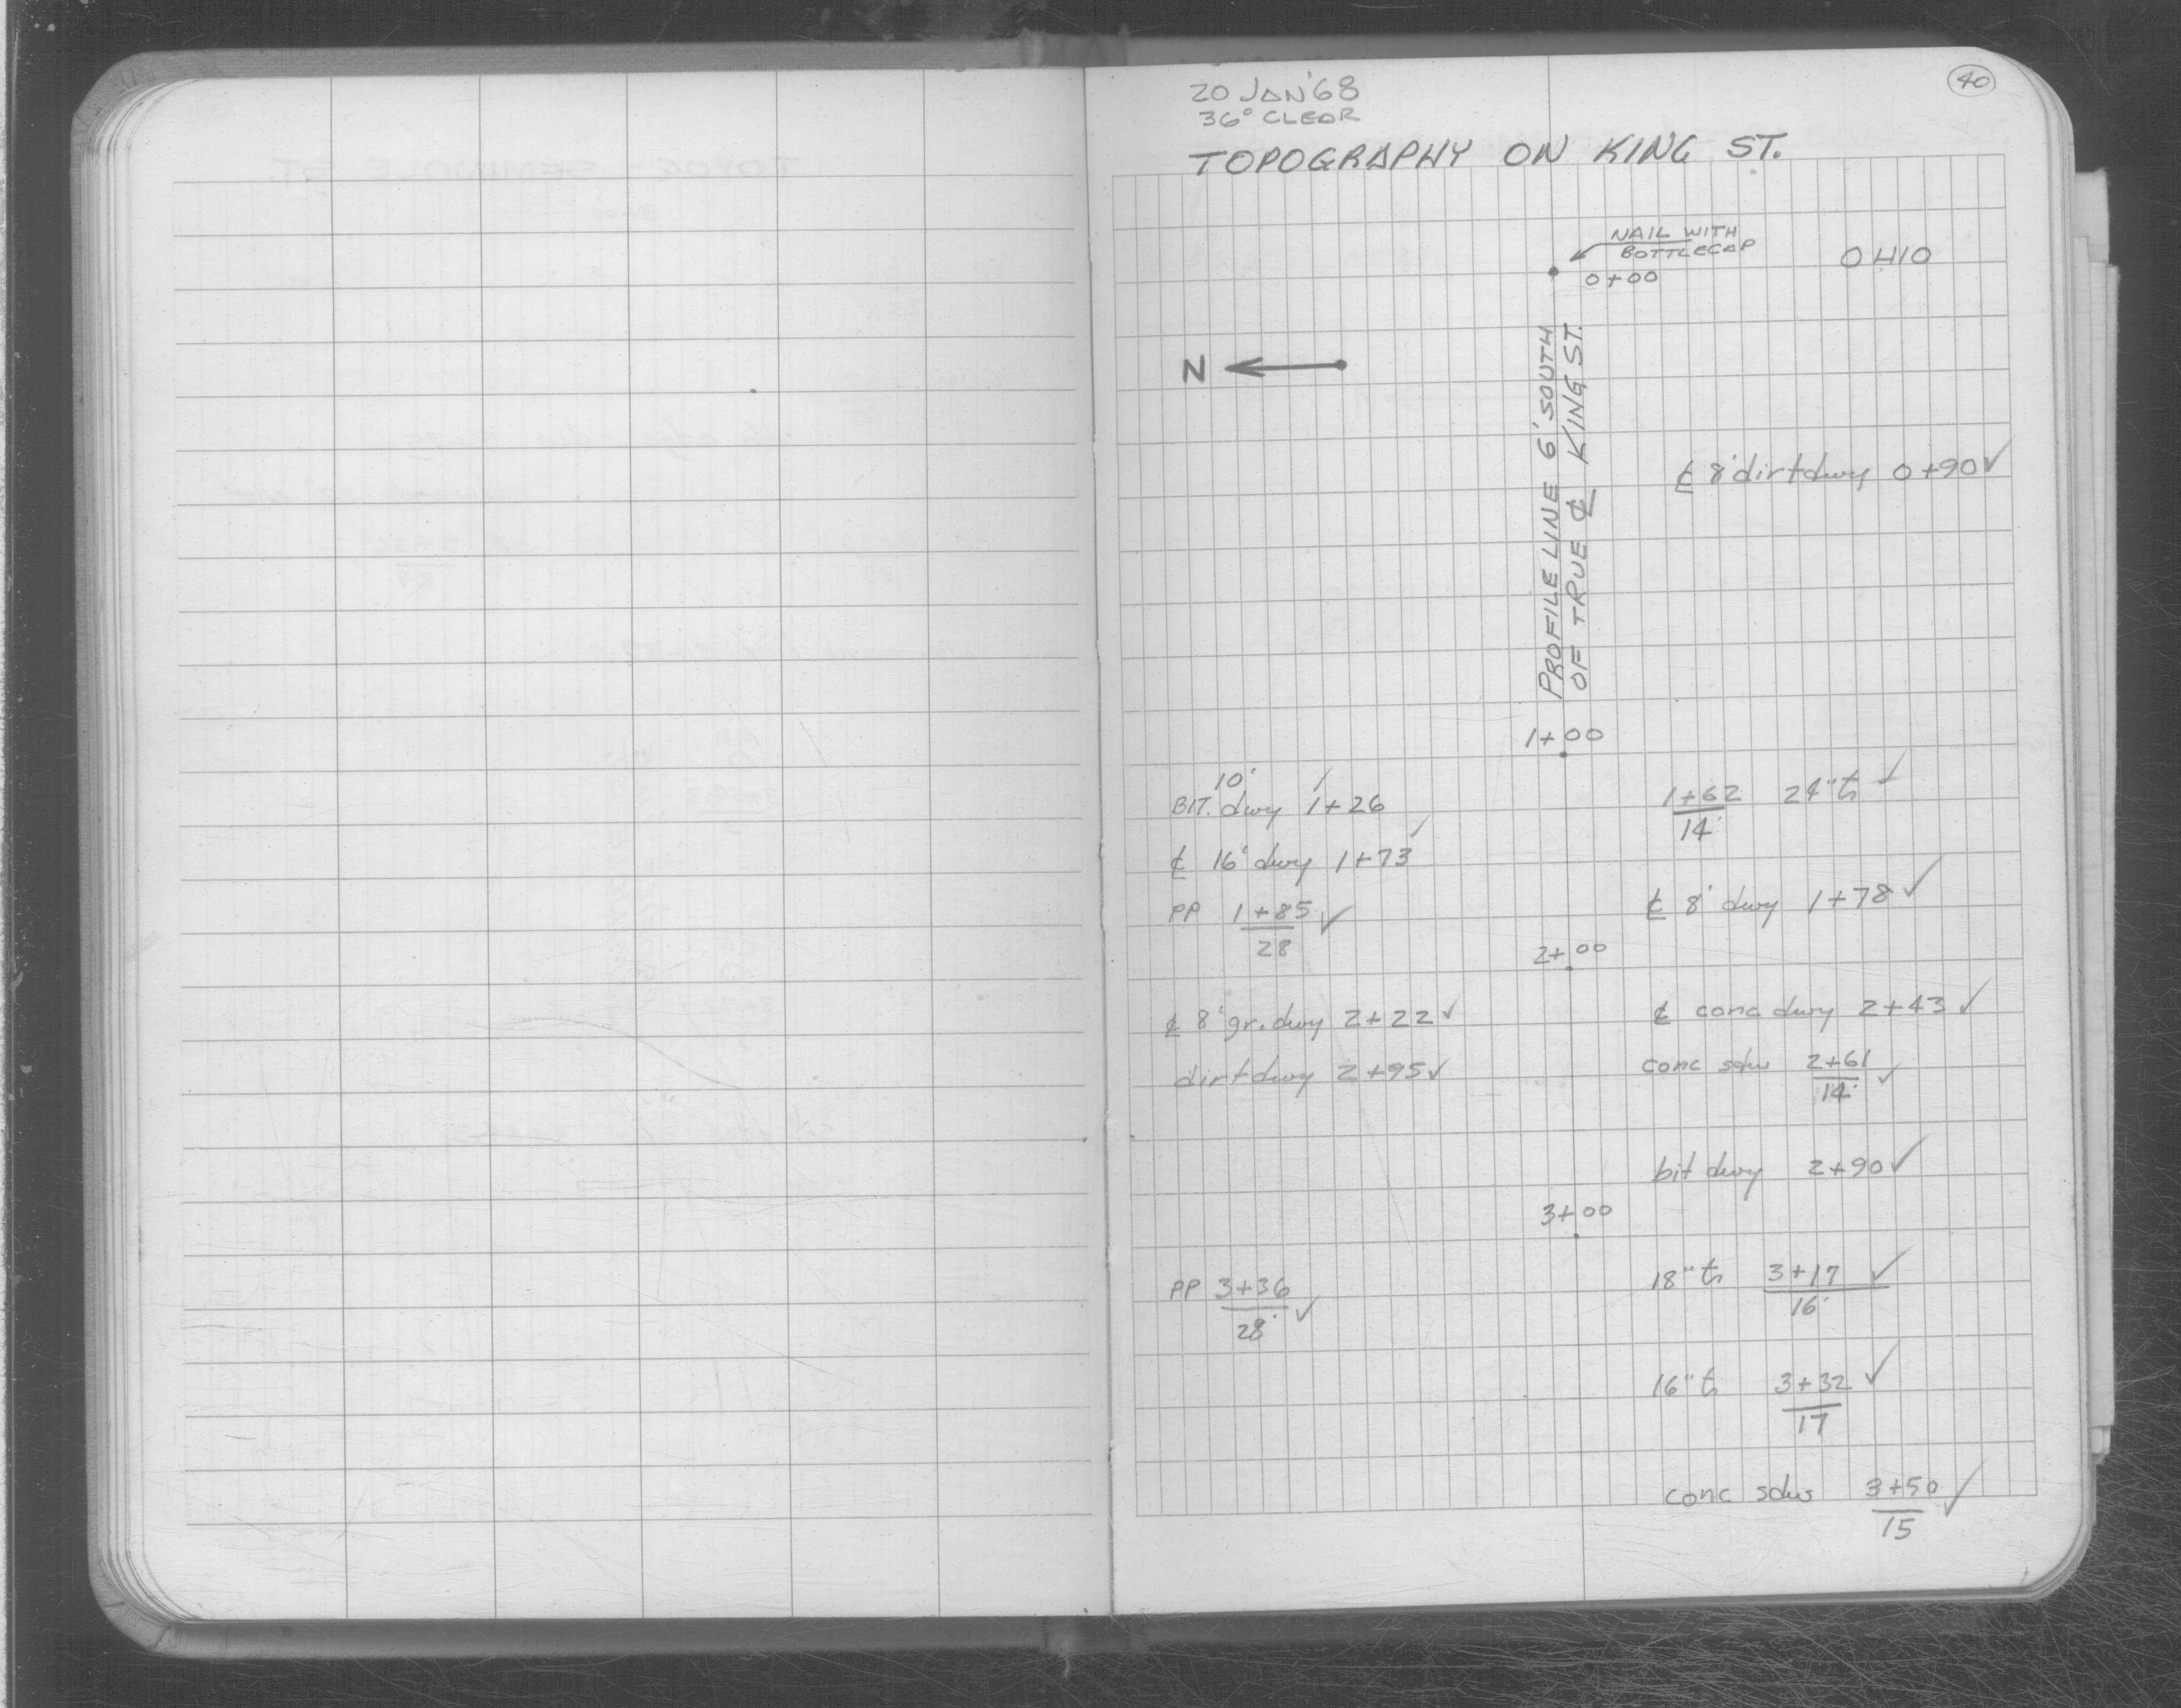 40
20 JAN '68
36° CLEAR
TOPOGRAPHY ON KING ST.
NAIL WITH
BOTTLECAP
0+00
OHIO
N
PROFILE LINE 6' SOUTH
OF TRUE ℄ KING ST.
℄ 8' dirt dwy 0+90 ✓
1+00
10'
BIT. dwy 1+26 ✓
1+62 24" tr ✓
14'
℄ 16' dwy 1+73 ✓
PP 1+85 ✓
28
℄ 8' dwy 1+78 ✓
2+00
℄ 8' gr. dwy 2+22 ✓
℄ conc dwy 2+43 ✓
dirt dwy 2+95 ✓
conc sdw 2+61 ✓
14'
bit dwy 2+90 ✓
3+00
PP 3+36 ✓
28'
18" tr 3+17 ✓
16'
16" tr 3+32 ✓
17
conc sdw 3+50 ✓
15